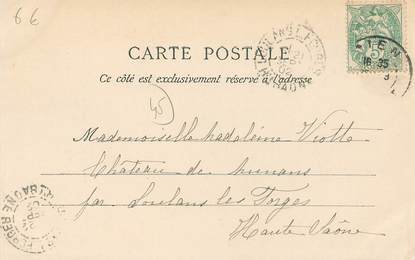 66
CARTE POSTALE
Ce côté est exclusivement réservé à l'adresse
45
Mademoiselle Madeleine Viotte
Château de
par Loulans les Forges
Haute Saône